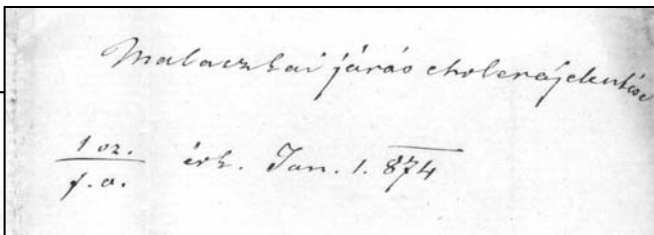 Malaczkai járás cholerajelentése
1 sz.
f. a.
érk. Jan. 1. 874